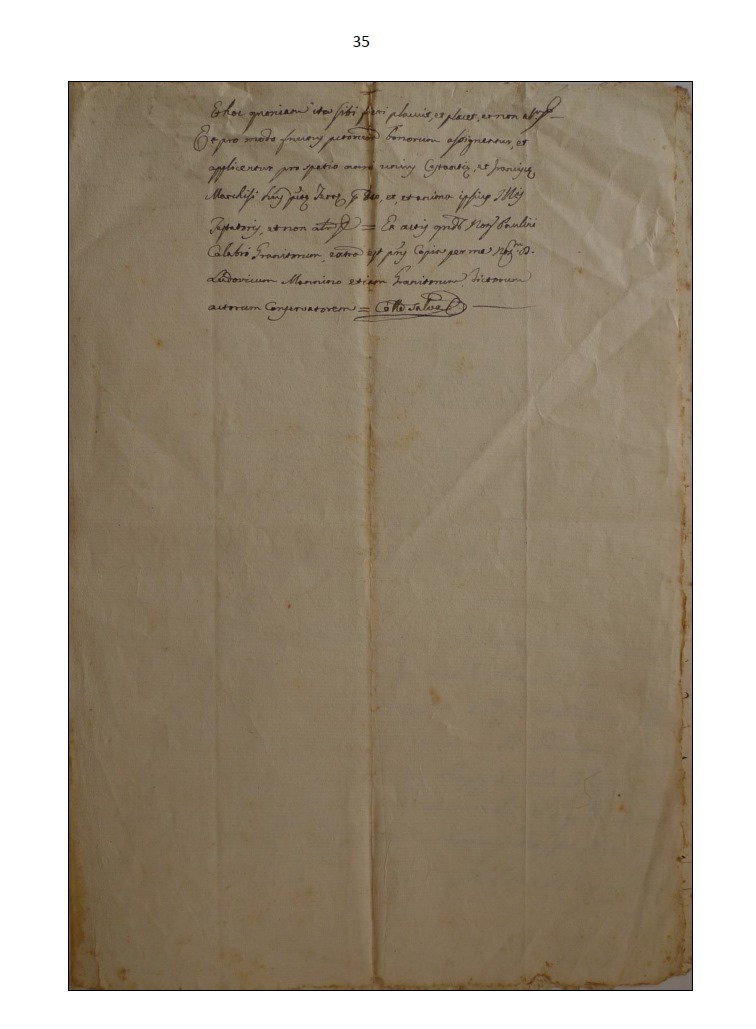 35
Et hoc quoniam ita sibi fieri placuit, et placet, et non alr
Et pro modo fructus bonorum assignentur, et
applicentur pro spatio anni unius Costantie, et Francisce
Marchisi Deo, et anima ipsius
Testatoris, et non alr = Ex actis qnd Not Paulini
Calabrò Granitorum, extra est pns Copia per me Not D.
Ludovicum Mannino etiam Granitorum dictorum
actorum Conservatorem = Colle Salva